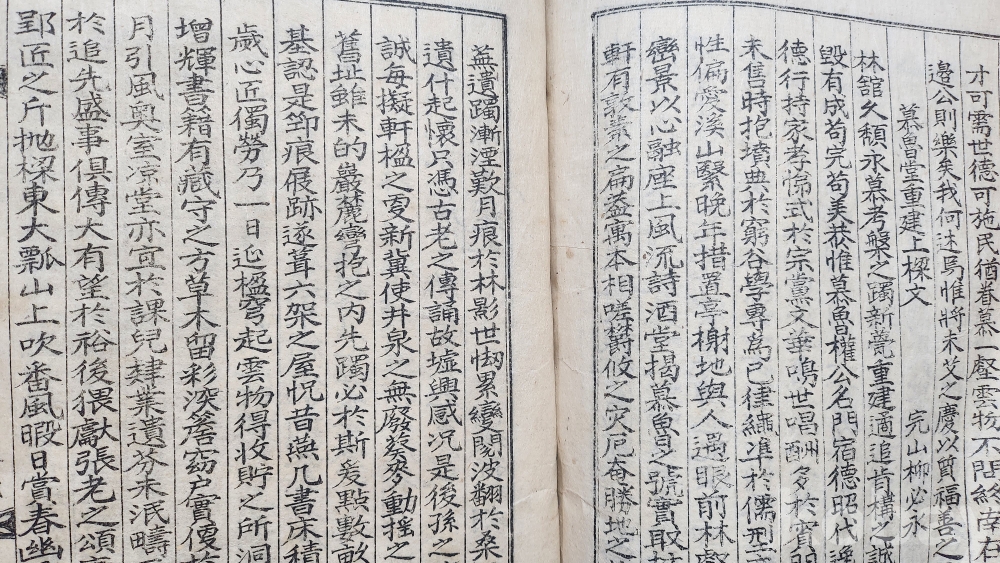 才可需世德可施民猶眷慕一壑雲物不閟終南右
邊公則樂矣我何述焉惟將朱艾之慶以賀福善之
慕魯堂重建上樑文 完山柳必永
林舘久頹永慕考槃之躅新甍重建適追肯構之誠
毁有成苟完苟美恭惟慕魯權公名門宿德昭代逸
德行持家孝悌式於宗黨文華鳴世唱酬多於賓朋
未售時抱墳典於窮谷學專爲己佳繩準於儒刑
性偏愛溪山緊晚年措置亭榭地與人遇眼前林壑
巒景以心融座上風流詩酒堂揭慕魯之號實取
軒有敦業之扁盖寓本相嗟欝攸之灾厄奄勝地之
蕪遺躅漸湮歎月痕於林影世刼累變閱波翻於桑
遺什起懷只憑古老之傳誦故墟興感况是後孫之
誠每擬軒楹之更新冀使井泉之無廢葵麥動搖之
舊址雖未的巖麓彎抱之內先躅必於斯爰點數畝
基認是笻痕屐跡遂葺六架之屋怳昔燕几書床積
歲心匠獨勞乃一日延楹穹起雲物得收貯之所洞
增輝書籍有藏守之方草木留彩深簷窈戶實傳於
月引風奥室凉堂亦宜於課兒肄業遺芬未泯疇
於追先盛事俱傳大有望於裕後猥獻張老之頌
郢匠之斤抛樑東大瓢山上吹番風暇日賞春幽